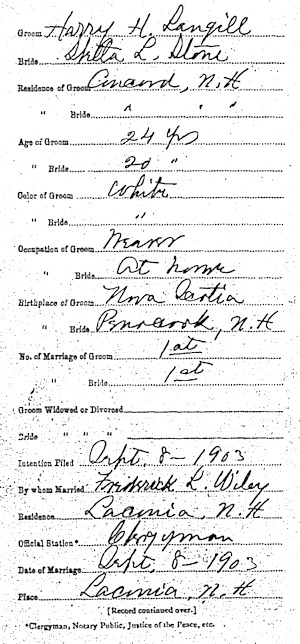 Groom Harry H. Langill
Bride Stilla L. Stone
Residence of Groom Concord, N.H
" Bride " " "
Age of Groom 24 yrs
" Bride 20 "
Color of Groom White
" Bride "
Occupation of Groom Weaver
" Bride At home
Birthplace of Groom Nova Scotia
" Bride Penacook, N.H
No. of Marriage of Groom 1st
" Bride 1st
Groom Widowed or Divorced
Bride " " "
Intention Filed Sept. 8 - 1903
By whom Married Frederick L. Wiley
Residence Laconia, N.H
Official Station* Clergyman
Date of Marriage Sept. 8 - 1903
Place Laconia, N.H
[Record continued over.]
*Clergyman, Notary Public, Justice of the Peace, etc.